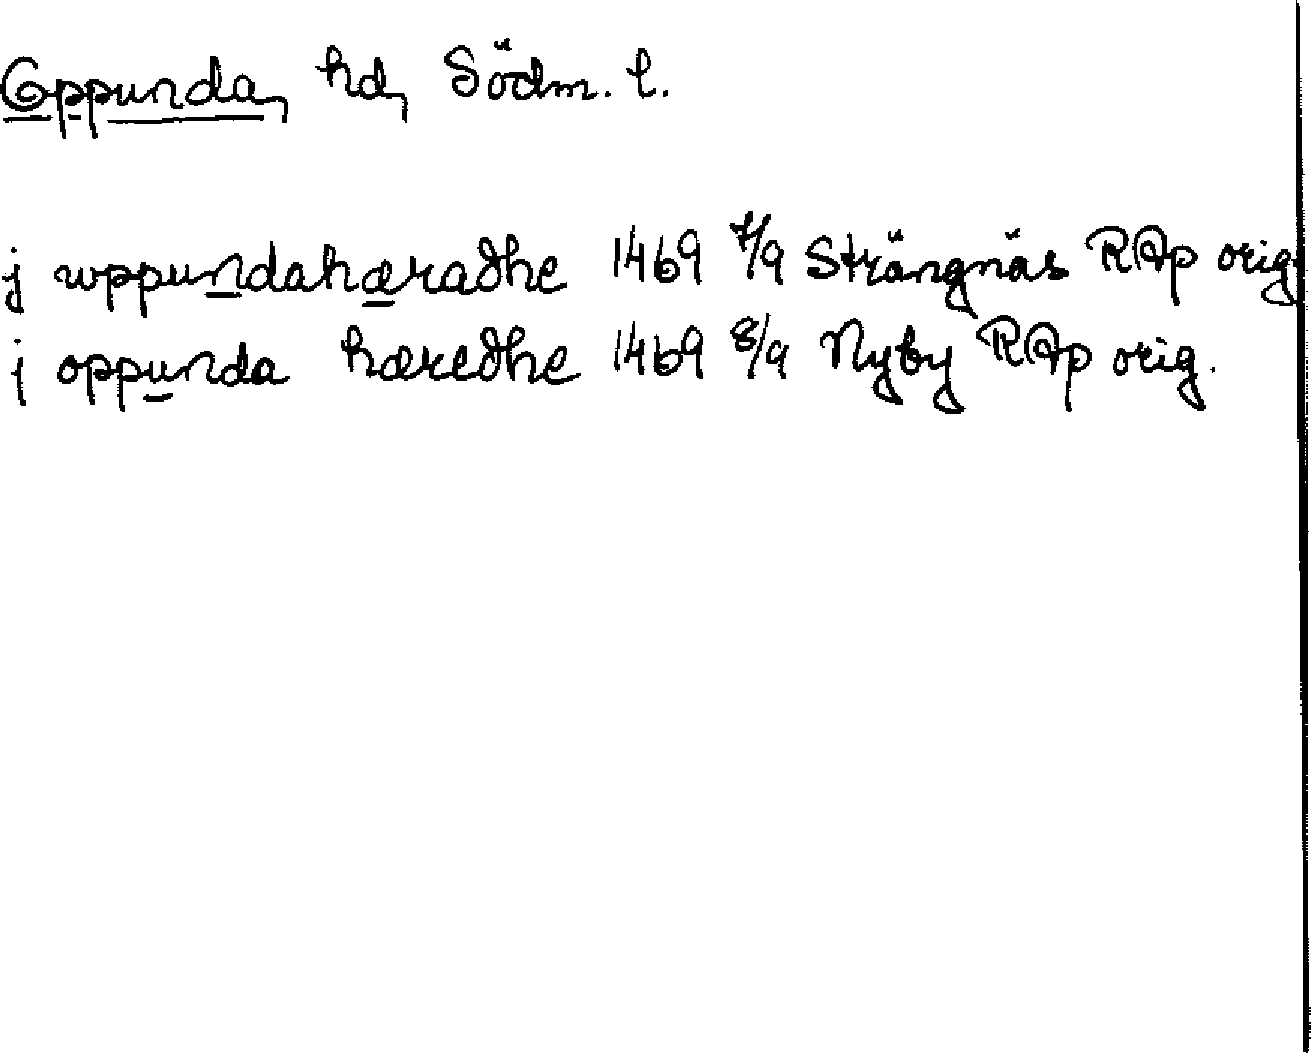 Oppunda, hd, Södm. l.
j wppundahæradhe 1469 7/9 Strängnäs RAp orig.
j oppunda hæredhe 1469 8/9 Nyby RAp orig.